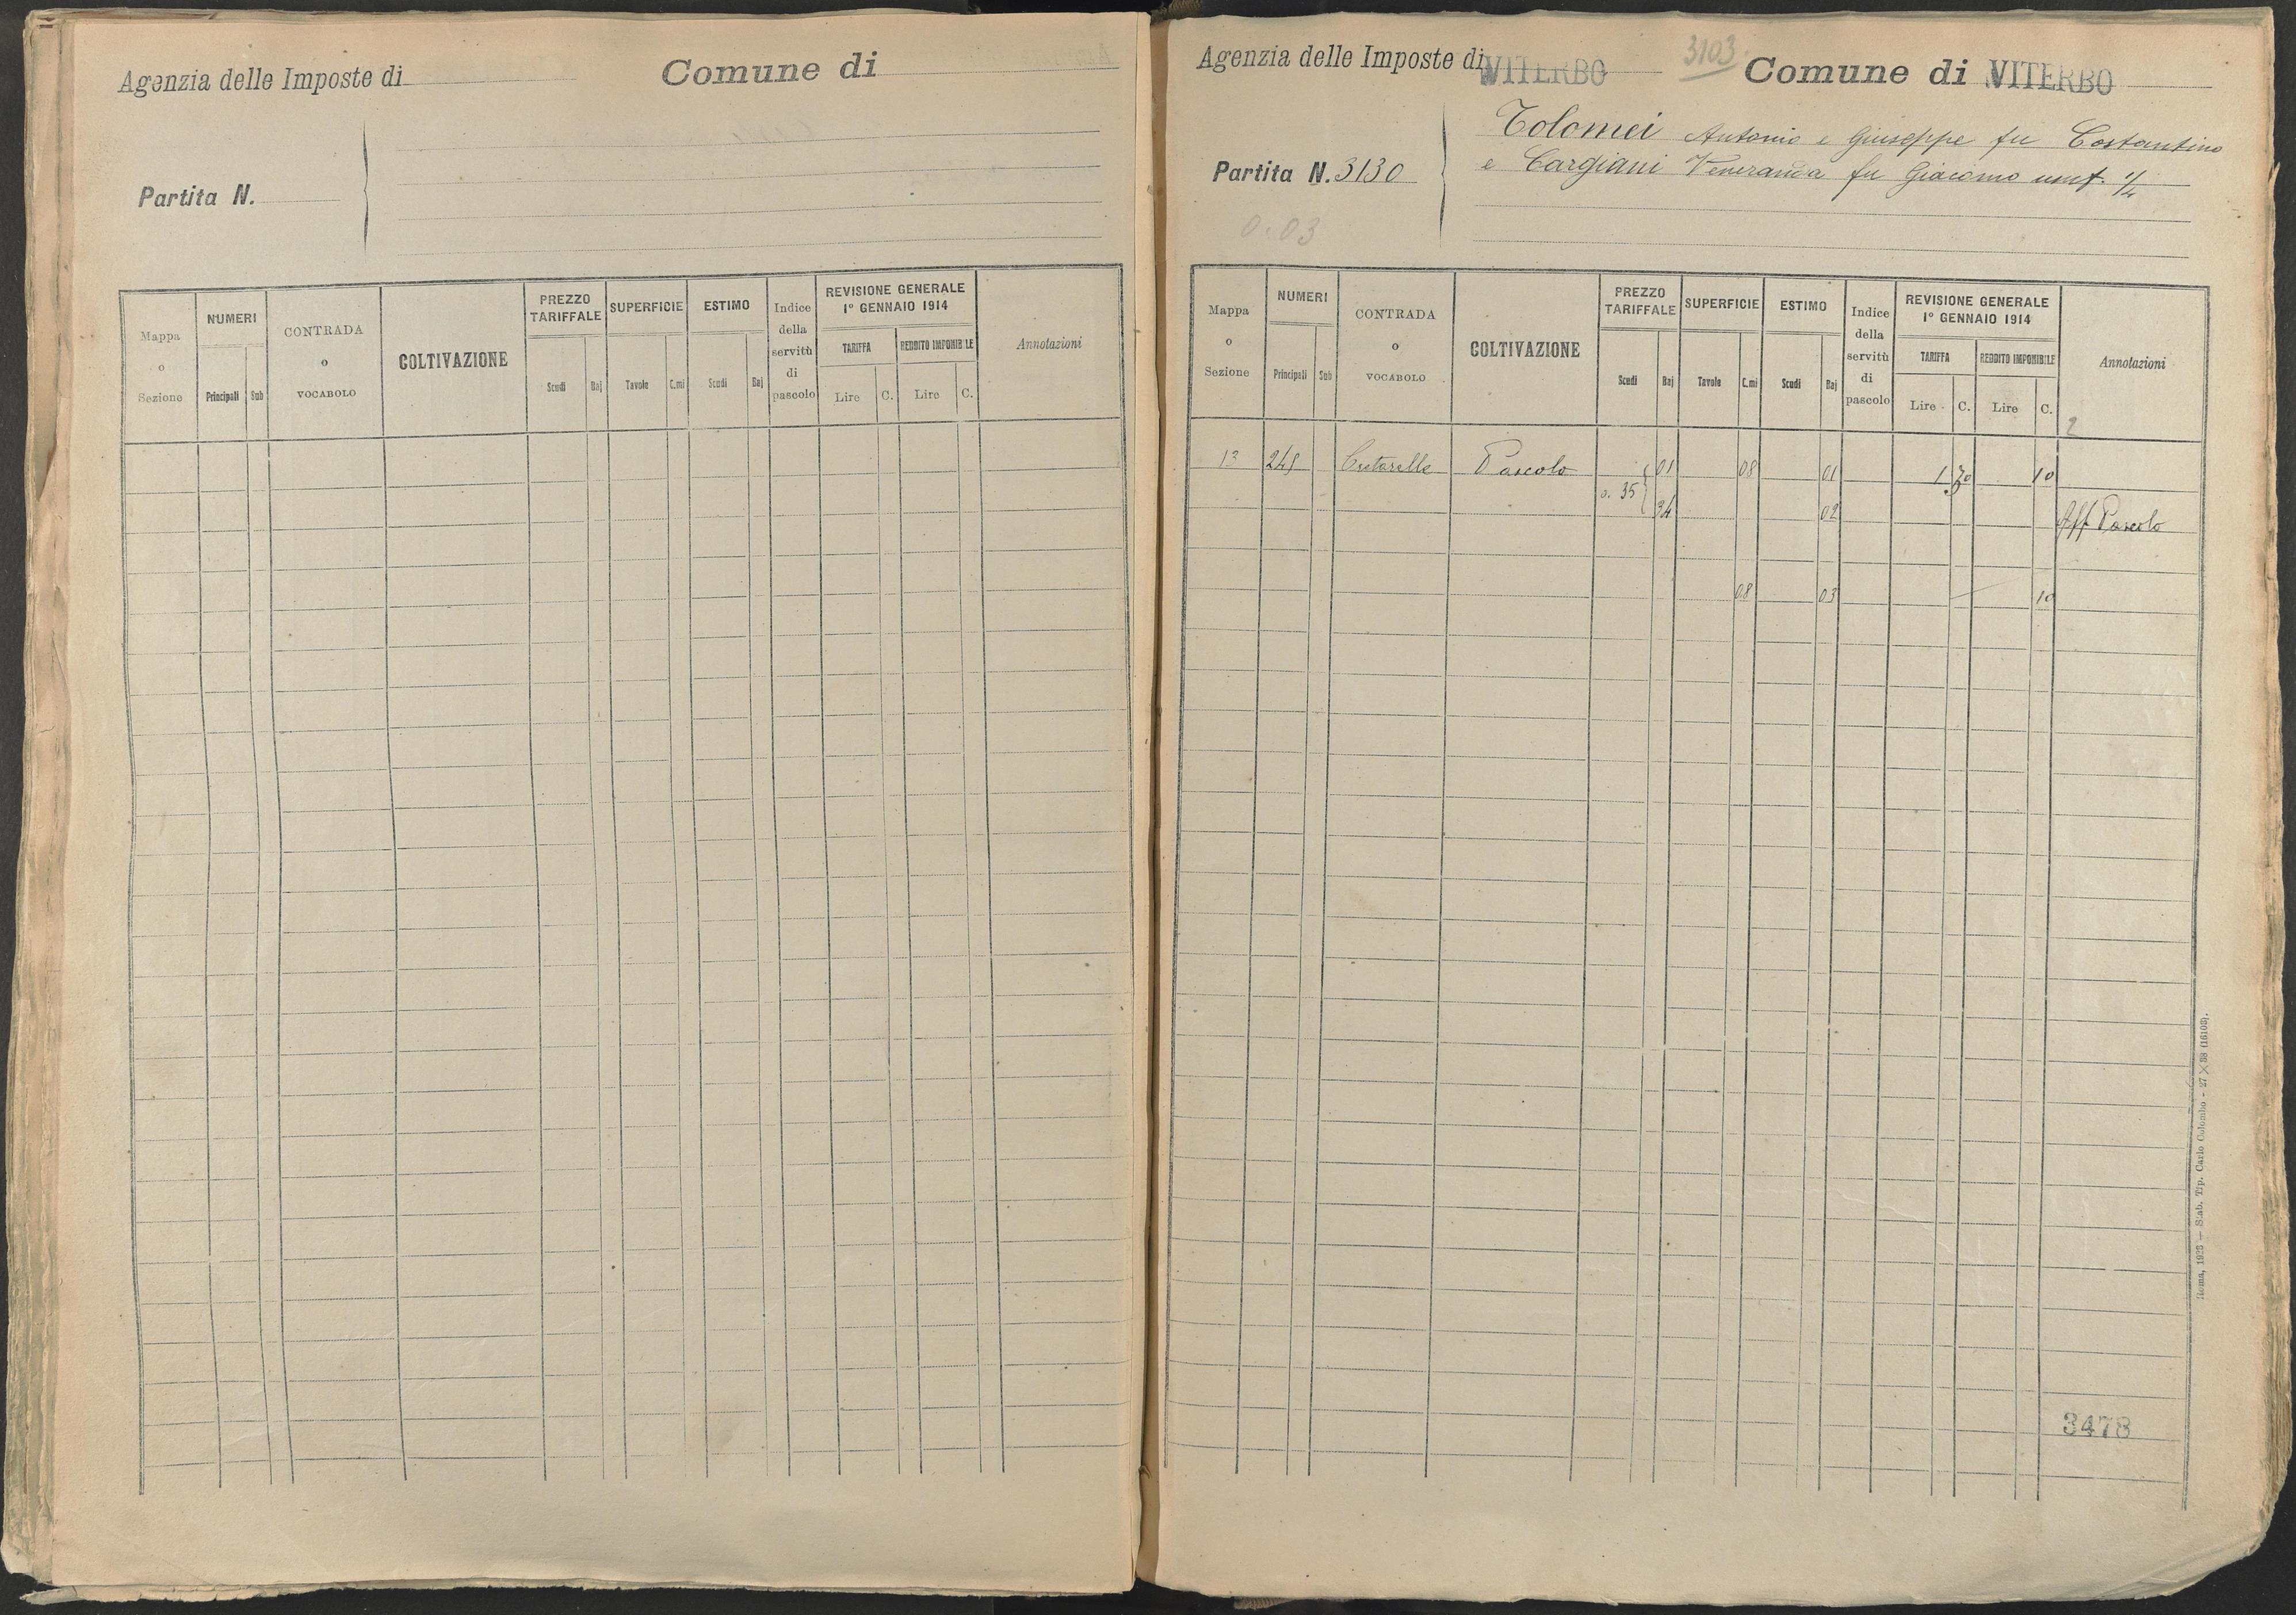 Agenzia delle Imposte di
Comune di
Partita N.
Mappa o Sezione
NUMERI
Principali
Sub
CONTRADA o VOCABOLO
COLTIVAZIONE
PREZZO TARIFFALE
Scudi
Baj
SUPERFICIE
Tavole
C.mi
ESTIMO
Scudi
Baj
Indice della servitù di pascolo
REVISIONE GENERALE
1° GENNAIO 1914
TARIFFA
REDDITO IMPONIBILE
Lire
C.
Lire
C.
Annotazioni
Agenzia delle Imposte di VITERBO
3103
Comune di VITERBO
Tolomei Antonio e Giuseppe fu Costantino
Partita N. 3130
e Cargiani Veneranda fu Giacomo usuf. 1/4
0.03
Mappa o Sezione
NUMERI
Principali
Sub
CONTRADA o VOCABOLO
COLTIVAZIONE
PREZZO TARIFFALE
Scudi
Baj
SUPERFICIE
Tavole
C.mi
ESTIMO
Scudi
Baj
Indice della servitù di pascolo
REVISIONE GENERALE
1° GENNAIO 1914
TARIFFA
REDDITO IMPONIBILE
Lire
C.
Lire
C.
Annotazioni
2
13 Pascolo 01 08 01 1 30 10
0.35 34 02 Aff Pascolo
08 03 10
3478
Roma, 1923 — Stab. Tip. Carlo Colombo - 27 × 38 (16103).